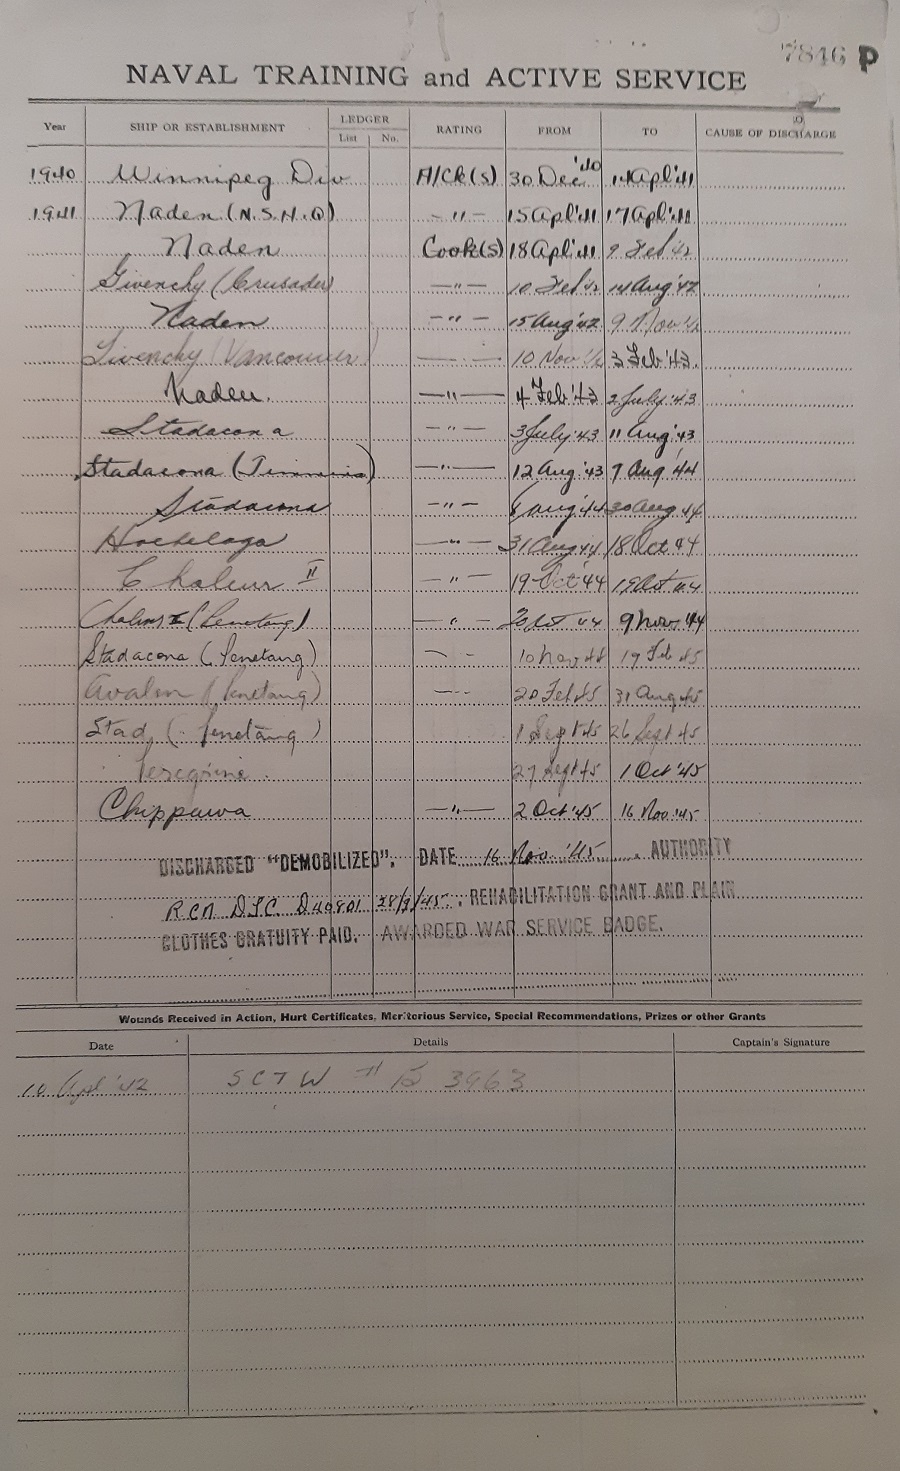 7846 P
NAVAL TRAINING and ACTIVE SERVICE
Year SHIP OR ESTABLISHMENT LEDGER List No. RATING FROM TO CAUSE OF DISCHARGE
1940 Winnipeg Div A/Ck(s) 30 Dec '40 14 Apl '41
1941 Naden (N.S.H.Q) -"- 15 Apl '41 17 Apl '41
Naden Cook(s) 18 Apl '41 9 Feb '42
Givenchy (Crusader) -"- 10 Feb '42 14 Aug '42
Naden -"- 15 Aug '42 9 Nov '42
Givenchy (Vancouver) -"- 10 Nov '42 3 Feb '43.
Naden. -"- 4 Feb '43 2 July '43
Stadacona -"- 3 July '43 11 Aug '43
Stadacona (Timmins) -"- 12 Aug '43 7 Aug '44
Stadacona -"- 8 Aug '44 30 Aug '44
Hochelaga -"- 31 Aug '44 18 Oct '44
Chaleur II -"- 19 Oct '44 19 Oct '44
Chaleur II (Penetang) -"- 20 Oct '44 9 Nov '44
Stadacona (Penetang) - - 10 Nov 19 Feb 45
Avalon (Penetang) -"- 20 Feb 45 31 Aug 45
Stad. (Penetang) 1 Sept 45 26 Sept 45
Peregrine 27 Sept 45 1 Oct '45
Chippawa -"- 2 Oct '45 16 Nov. '45
DISCHARGED "DEMOBILIZED". DATE 16 Nov. '45. AUTHORITY
RCN D.T.C. 28/9/45. REHABILITATION GRANT AND PLAIN
CLOTHES GRATUITY PAID. AWARDED WAR SERVICE BADGE.
Wounds Received in Action, Hurt Certificates, Meritorious Service, Special Recommendations, Prizes or other Grants
Date Details Captain's Signature
10 Apl '42 SCTW # B 3963